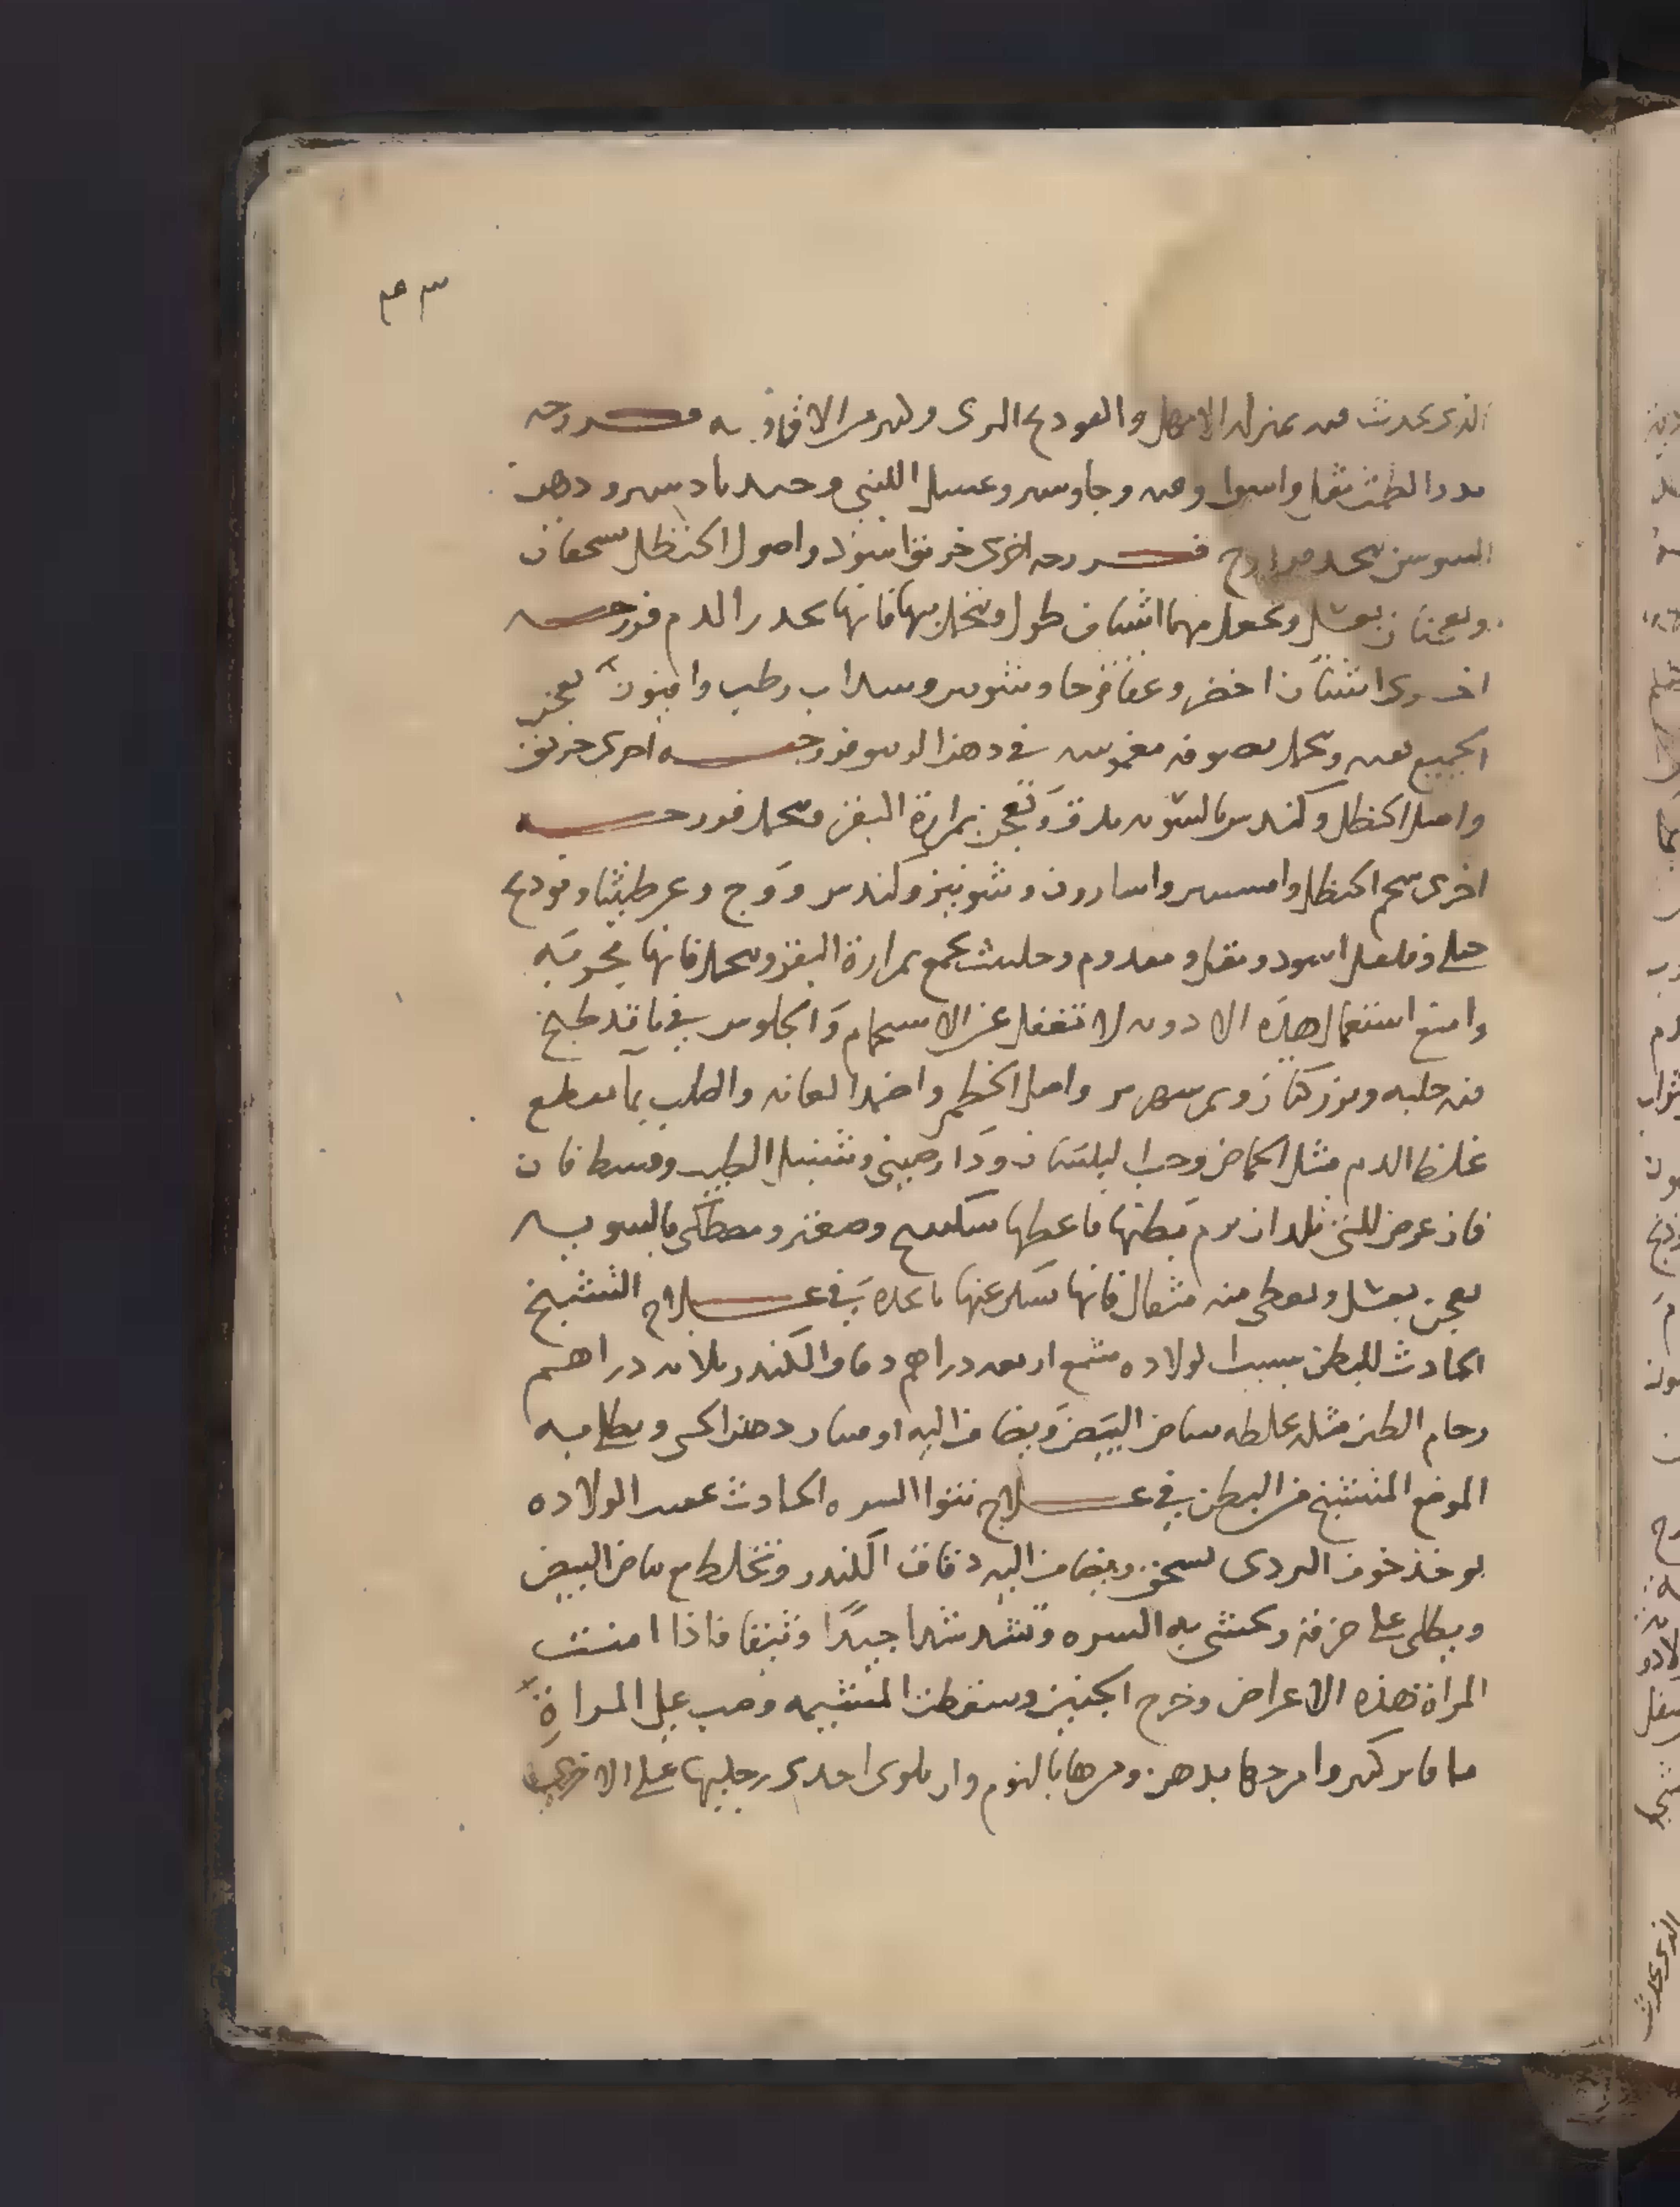 ٤٣
الذى يحدث فيه بمنزله الابهل والفودنج البرى وليس من الافاويه فرزجه
مدر الطمث مقل واشق وقنه وجاوشير وعسل اللبنى وجندبادستر ودهن
السوسن فرزجه اخرى خربق اسود واصول الحنظل يسحقان
ويعجنان بعسل ويجعل منهما اشياف طول ويتحمل بها فانها تحدر الدم فرزجه
اخرى اشنان اخضر وعاقرقرحا وشونيز وسداب رطب وافيون يعجن
الجميع بقنه ويحمل بصوفه مغموسه فى دهن السوسن فرزجه اخرى خربق
واصل الحنظل وكندس بالسويه يدق ويعجن بمرارة البقر ويحمل فرزجه
اخرى شحم الحنظل وافسنتين واسارون وشونيز وكندس ووج وعرطنيثا وفودنج
جبلى وفلفل اسود ومقل وحلتيت يجمع بمرارة البقر ويحمل فانها مجربه
وامنع استعمال هذه الادويه لا تغفل عن الاستحمام والجلوس فى ما قد طبخ
فيه حلبه وبزر كتان واصل الخطمى واضمد العانه والصلب بما يقطع
غلظ الدم مثل الحماض وحب البلسان ودارصينى وسنبل الطيب وقسط فان
فان عرض للتى تلد ان يرم بطنها فاعطها سكبينج وصعتر ومصطكى بالسويه
يعجن بعسل ويعطى منه مثقال فانها يسكن عنها ما تجده فى علاج التشبخ
الحادث للبطن بسبب الولاده شمع اربعه دراهم دقاق الكندر ثلاثه دراهم
وخام الطين مثله يخلطه ببياض البيض ويضاف اليه ويطلى به
الموضع المتشبخ من البطن فى علاج نتوا السره الحادث عقيب الولاده
يوخذ خوف البردى يسحق ويضاف اليه دقاق الكندر وتخلط مع بياض البيض
ويطلى على خرقه وتحشى به السره وتشد شدا جيدا وثيقا فاذا امنت
المراة هذه الاعراض وخرج الجنين وسقطت المشيمه وصب على المراة
ما فاتر كثير وامرخها بدهن ومرها بالنوم وان تلوى احدى رجليها على الاخرى